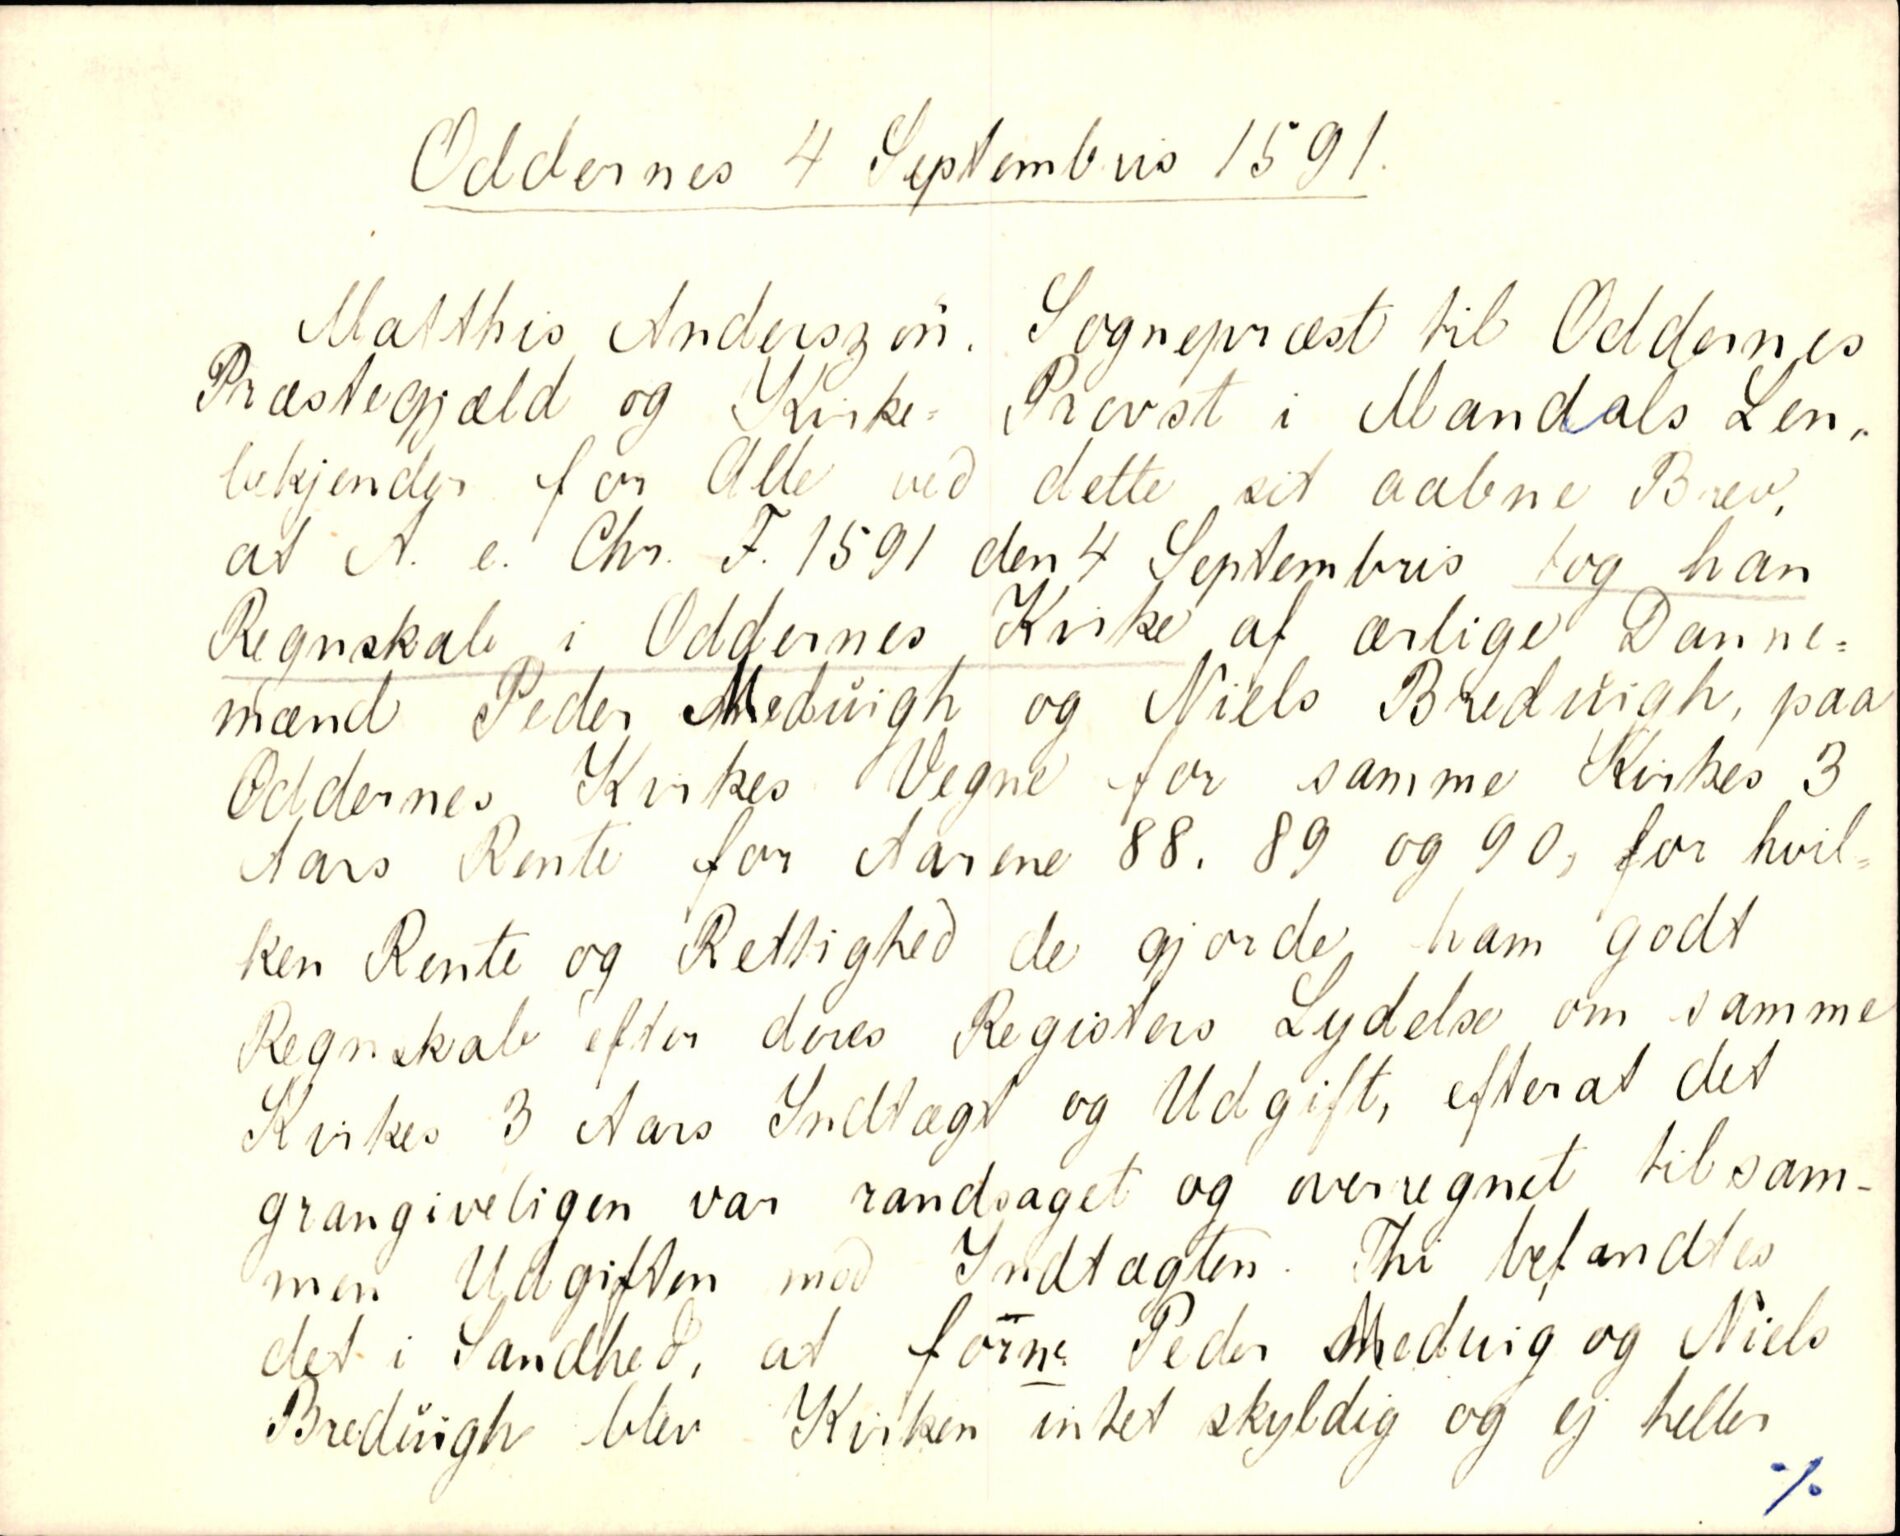 Oddernes 4 Septembris 1591.
Matthis Anderszøn. Sognepræst til Oddernes
Præstegjæld og Kirke= Provst i Mandals Len,
bekjender for Alle ved dette sit aabne Brev,
at A. e. Chr. F. 1591 den 4 Septembris tog han
Regnskab i Oddernes Kirke af ærlige Danne=
mænd Peder Meduigh og Niels Breduigh, paa
Oddernes Kirkes Vegne for samme Kirkes 3
Aars Rente for Aarene 88. 89 og 90, for hvil=
ken Rente og Rettighed de gjorde ham godt
Regnskab efter deres Registers Lydelse om samme
Kirkes 3 Aars Indtægt og Udgift, efterat det
grangiveligen var randsaget og overregnet tilsam-
men Udgiften mod Indtægten. Thi befandtes
det i Sandhed, at forne Peder Meduig og Niels
Breduigh blev Kirken intet skyldig og ej heller
·/.